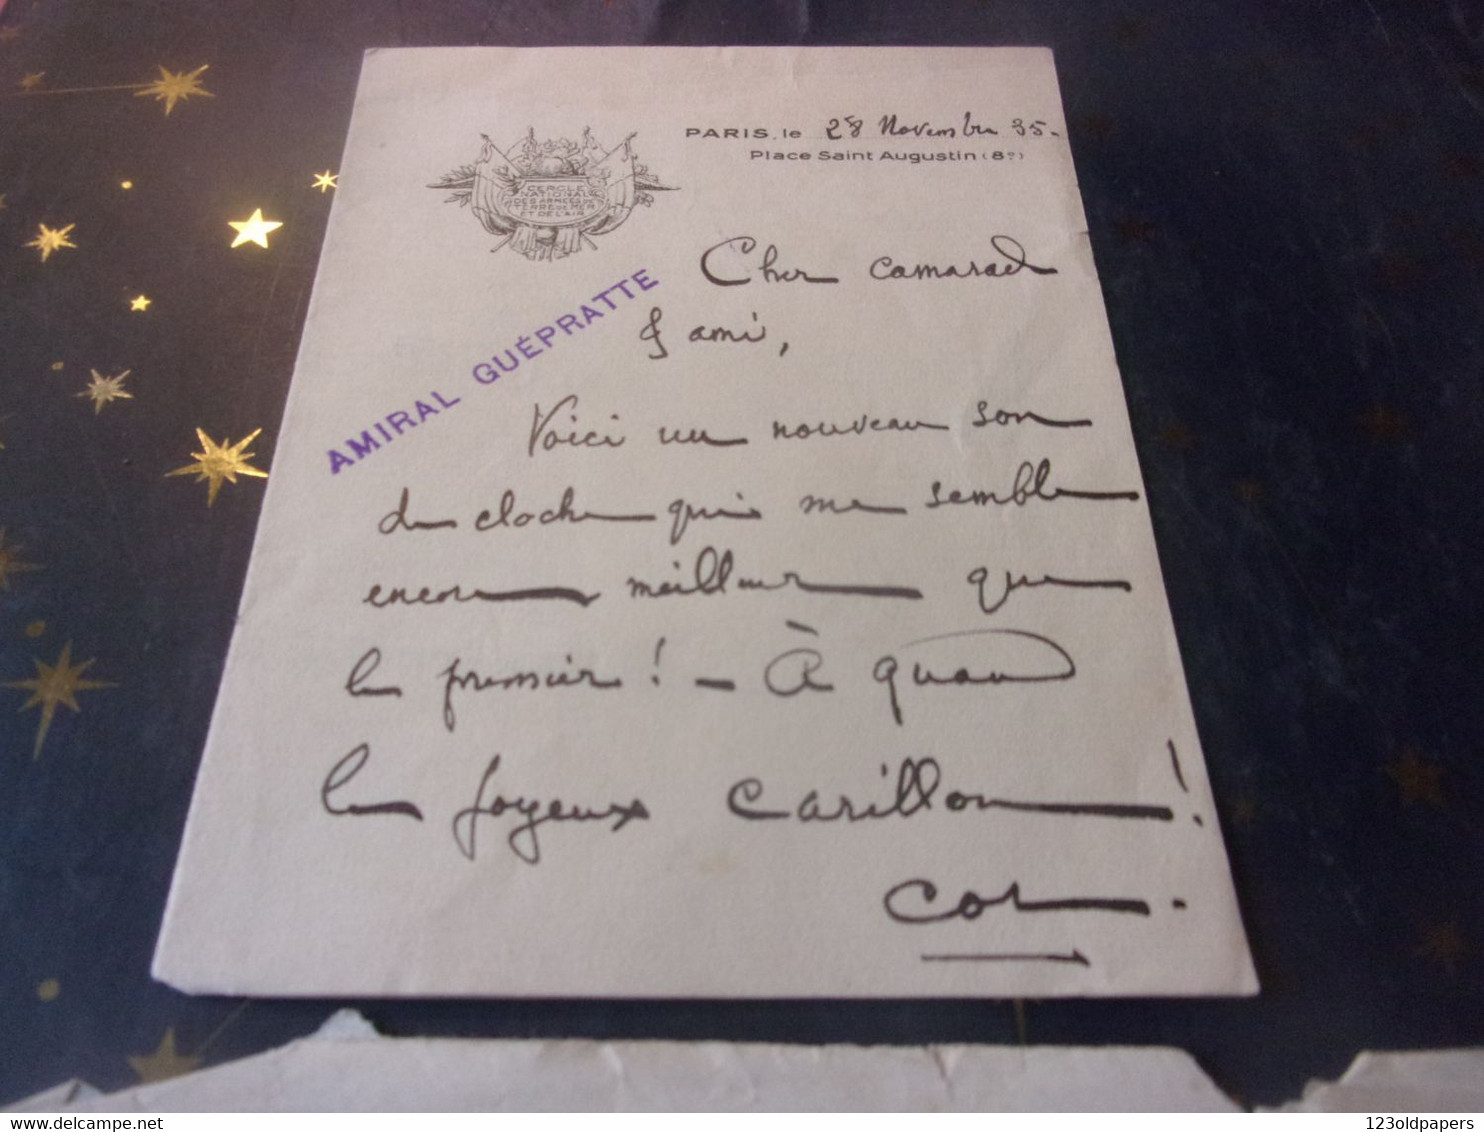 PARIS, le 28 Novembre 35-
Place Saint Augustin (8e)
CERCLE
NATIONAL
DES ARMÉES DE
TERRE DE MER
ET DE L'AIR
AMIRAL GUÉPRATTE
Cher camarade
& ami,
Voici un nouveau son
de cloche qui me semble
encore meilleur que
le premier! - À quand
le joyeux carillon!
123oldpapers